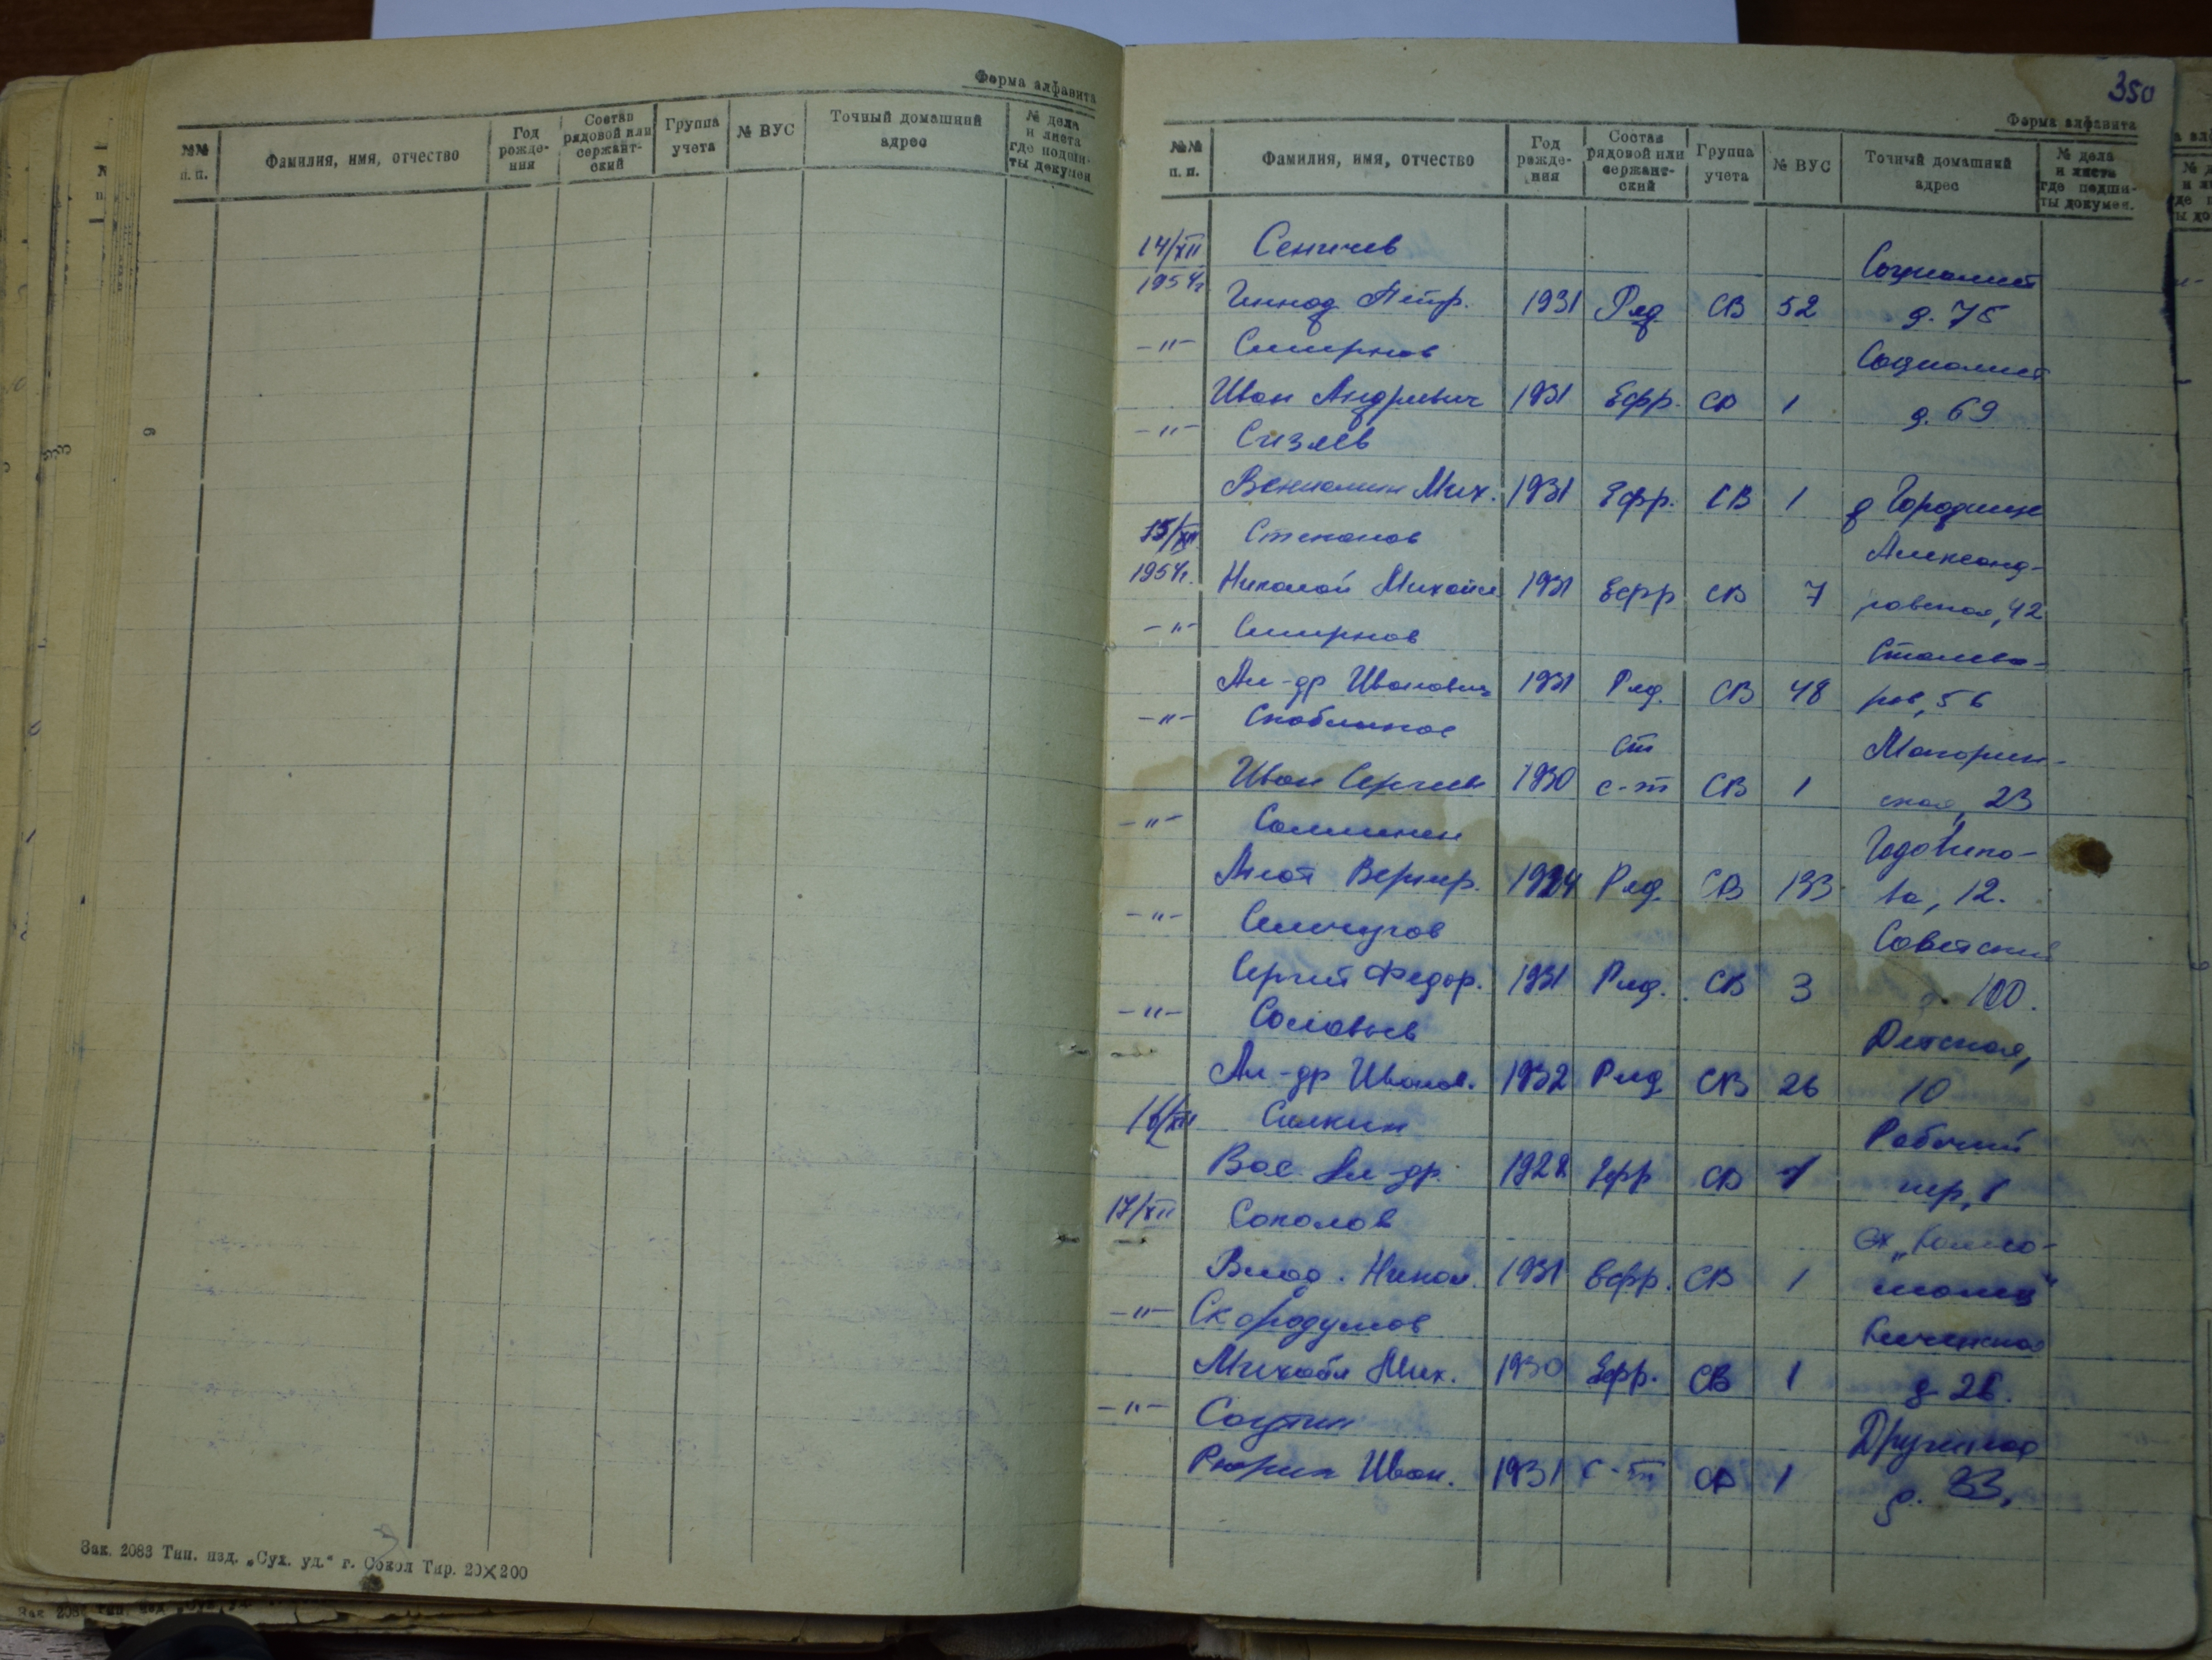 Форма алфавита
№№ п. п.
Фамилия, имя, отчество
Год рожде-ния
Состав рядовой или сержант-ский
Группа учета
№ ВУС
Точный домашний адрес
№ дела и листа где подши-ты докумен
Зак. 2083 Тип. изд. „Сух. уд.“ г. Сокол Тир. 20×200
350
Форма алфавита
№№ п. п.
Фамилия, имя, отчество
Год рожде-ния
Состав рядовой или сержант-ский
Группа учета
№ ВУС
Точный домашний адрес
№ дела и листа где подши-ты докумен.
14/XII Сеничев Социалист
1954г Геннад Петр. 1931 Ряд. СВ 52 д. 75
-"- Смирнов Социалист
Иван Андреевич 1931 Ефр. СВ 1 д. 69
-"- Сизяев
Вениамин Мих. 1931 Ефр. СВ 1 д Городище
15/XII Степанов Александ-
1954г. Николай Михайл 1931 Ефр СВ 7 ровская, 42
-"- Смирнов Сталева-
Ал-др Иванович 1931 Ряд. СВ 48 ров, 56
-"- ст
Иван Сергеев 1930 с-т СВ 1 ская, 23
-"- Годовико-
1924 Ряд. СВ 133 ва, 12.
-"- Советский
Сергей Федор. 1931 Ряд. СВ 3 д. 100.
-"- Соловьев Детская,
Ал-др Иванов. 1932 Ряд СВ 26 10
16/XII Салкин Рабочий
Вас. Ал-др. Ефр СВ пер,
17/XII Соколов
Влад. Никол. 1931 Ефр. СВ 1
-"- Скородумов
Михаил Мих. 1930 Ефр. СВ 1 д 26.
-"-
Рюрик Иван. 1931 с-т СВ 1 д. 33,